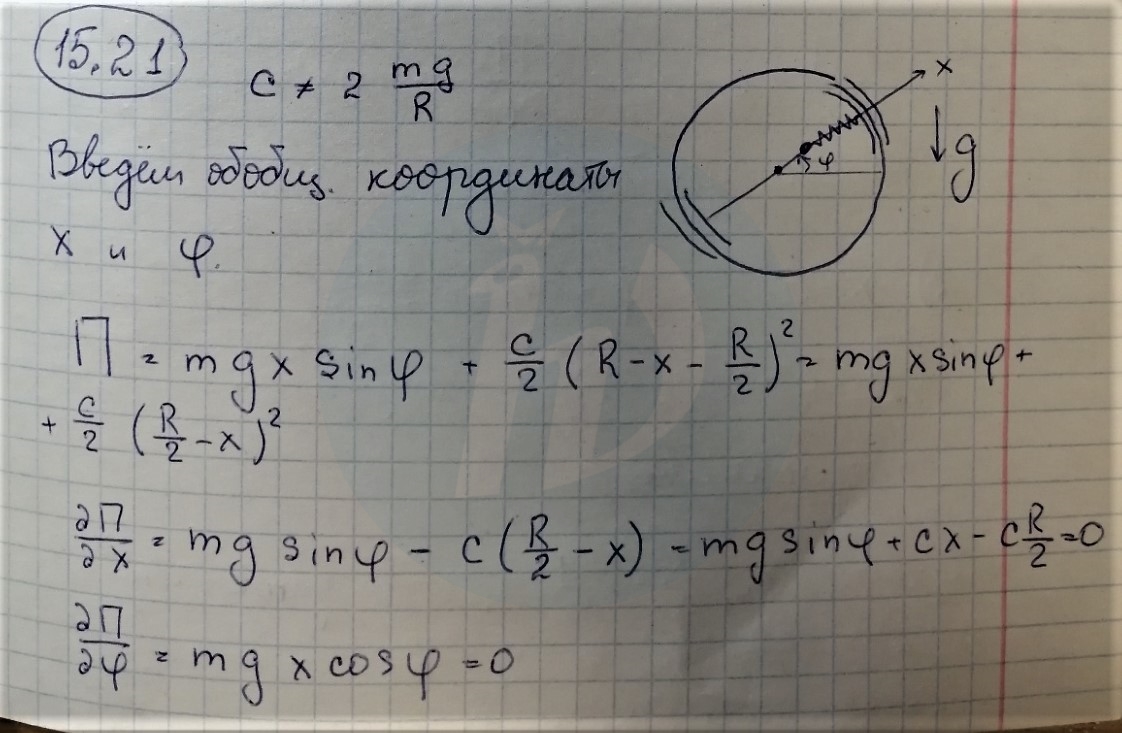 15.21
c ≠ 2 mg/R
Введём обобщ. координаты
x и φ.
x
φ
g
П = mgx sinφ + c/2 (R - x - R/2)² = mgx sinφ +
+ c/2 (R/2 - x)²
∂П/∂x = mg sinφ - c(R/2 - x) = mg sinφ + cx - c R/2 = 0
∂П/∂φ = mg x cosφ = 0